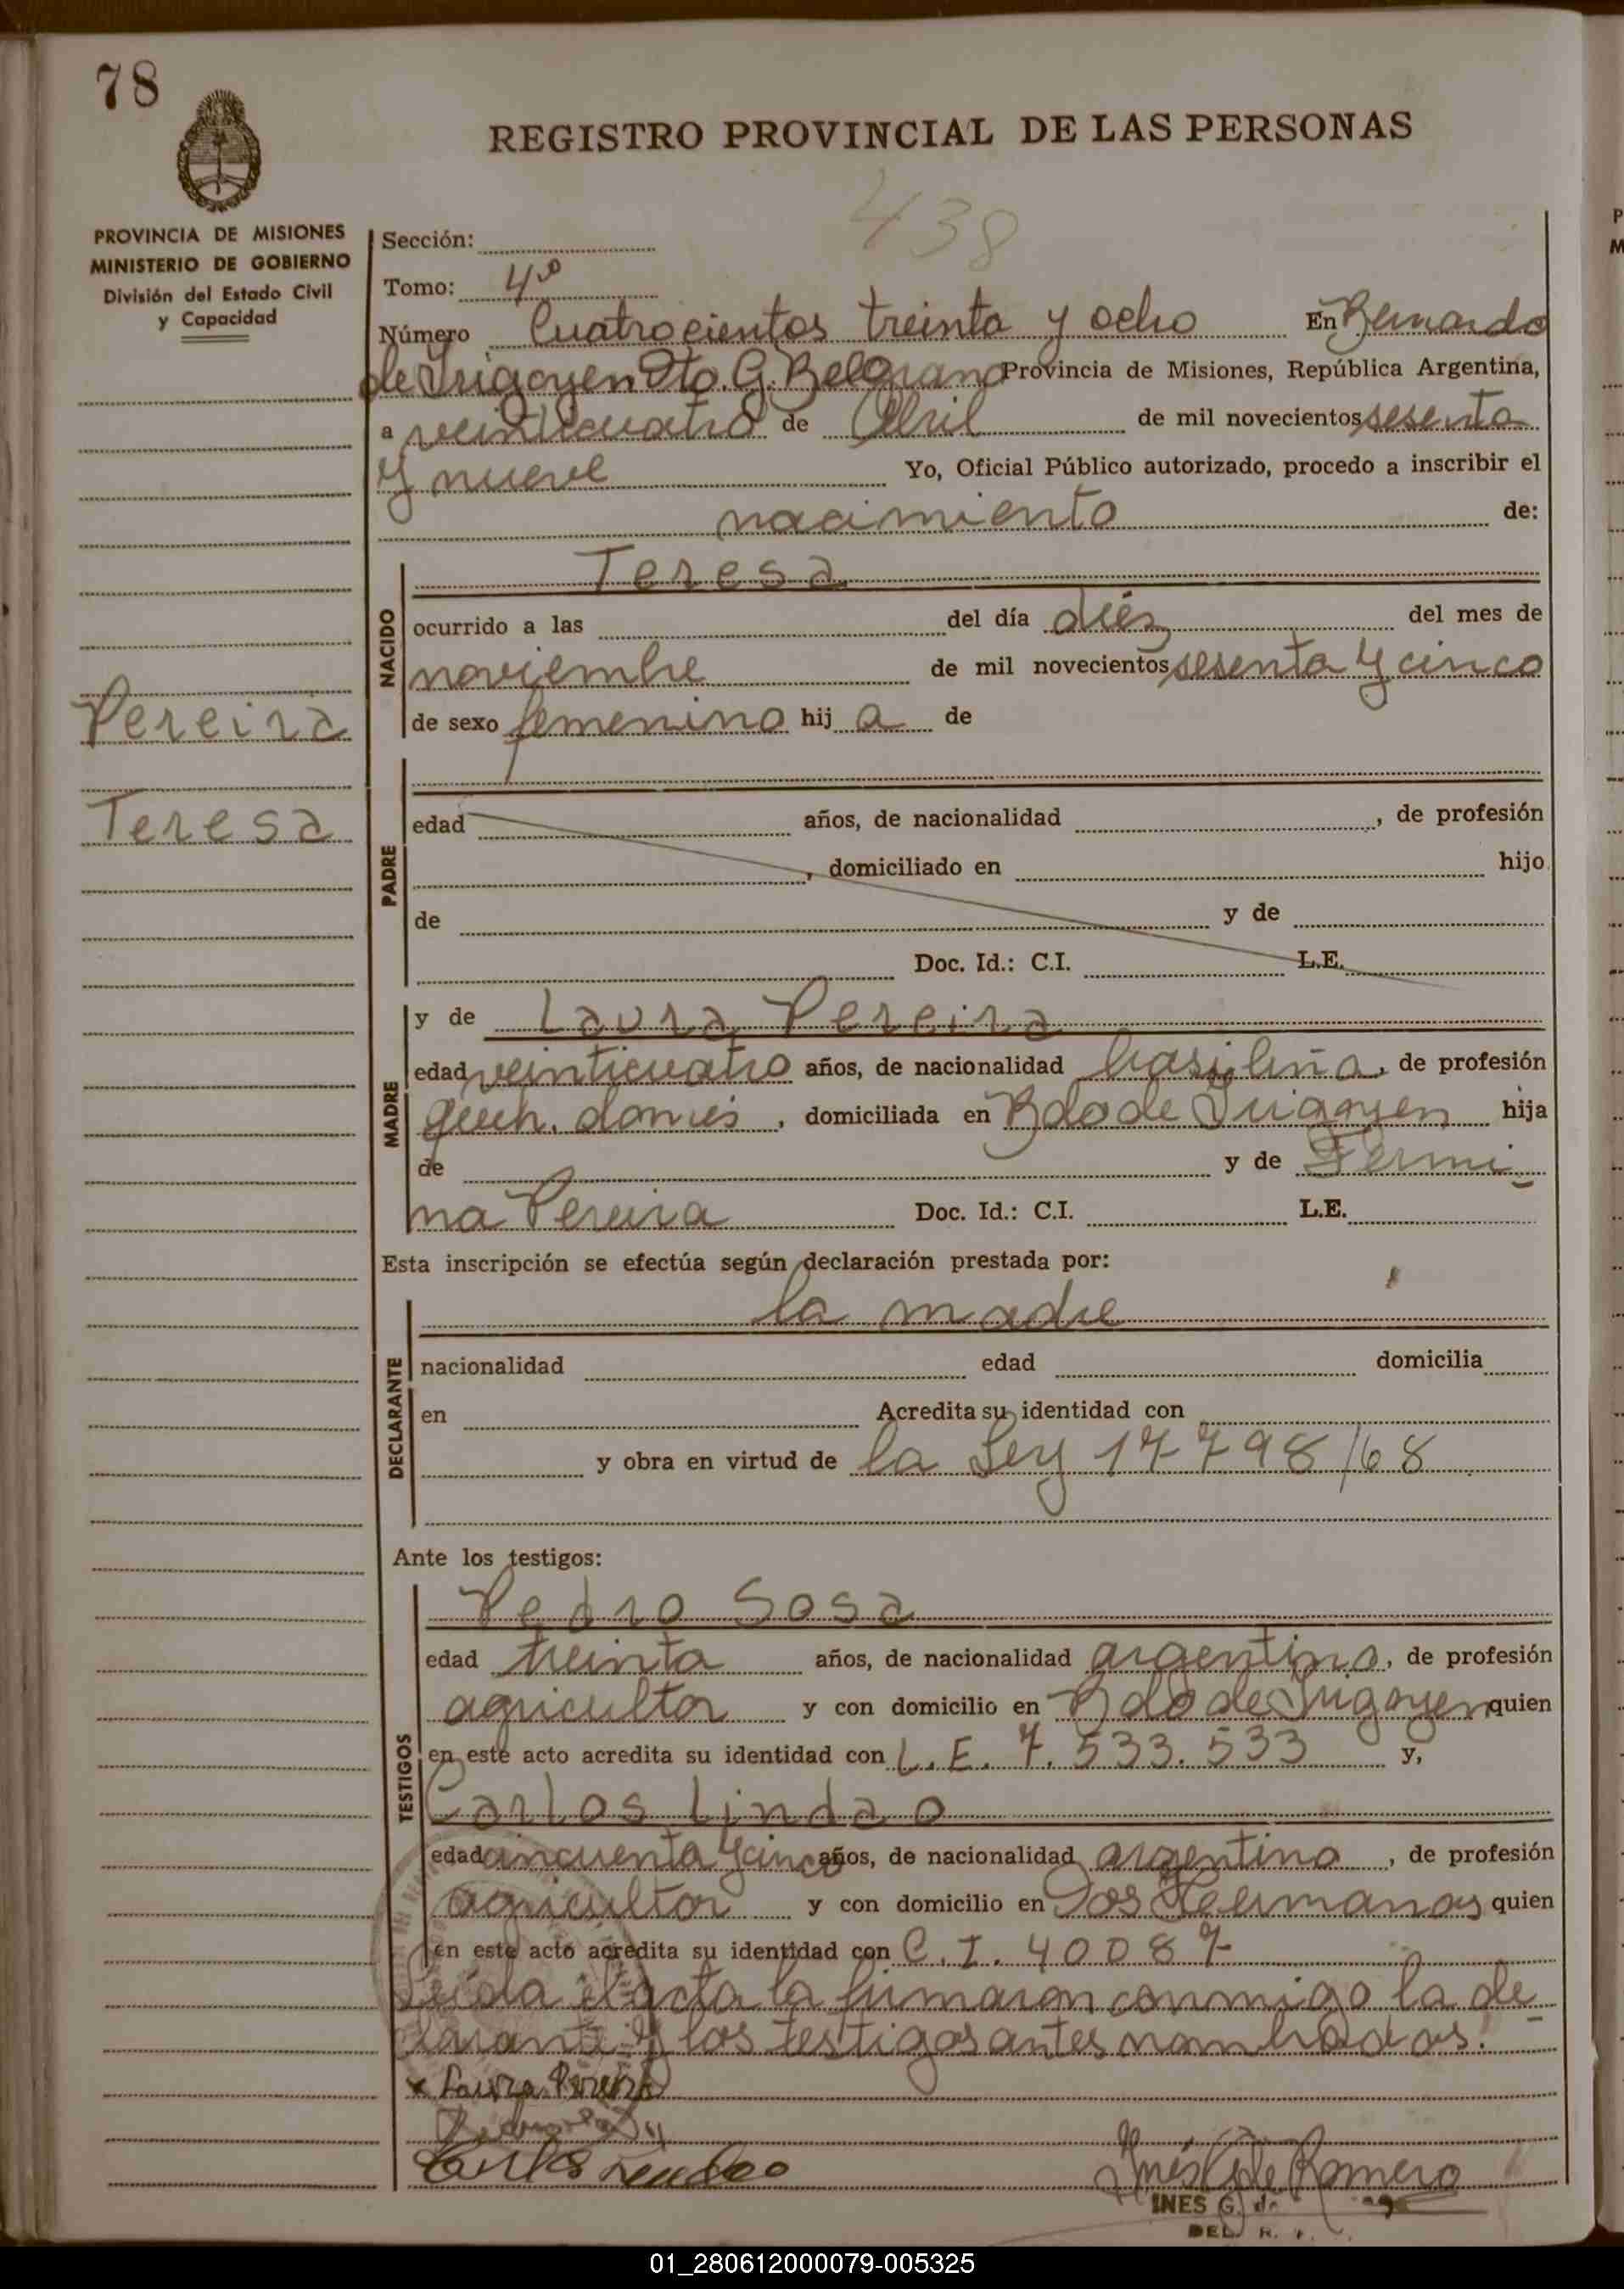 78
REGISTRO PROVINCIAL DE LAS PERSONAS
438
PROVINCIA DE MISIONES
MINISTERIO DE GOBIERNO
División del Estado Civil
y Capacidad
Sección:
Tomo: 4º
Número Cuatrocientos treinta y ocho En Bernardo
de Irigoyen Dto. G. Belgrano Provincia de Misiones, República Argentina,
a veinticuatro de Abril de mil novecientos sesenta
y nueve Yo, Oficial Público autorizado, procedo a inscribir el
nacimiento de:
NACIDO
Teresa
ocurrido a las del día diez del mes de
noviembre de mil novecientos sesenta y cinco
de sexo femenino hij a de
Pereira
Teresa
PADRE
edad años, de nacionalidad , de profesión
, domiciliado en hijo
de y de
Doc. Id.: C.I. L.E.
MADRE
y de Laura Pereira
edad veinticuatro años, de nacionalidad brasileña, de profesión
queh. domés , domiciliada en Bdo de Irigoyen hija
de y de Fermi
na Pereira Doc. Id.: C.I. L.E.
Esta inscripción se efectúa según declaración prestada por:
DECLARANTE
la madre
nacionalidad edad domicilia
en Acredita su identidad con
y obra en virtud de la Ley 17798/68
Ante los testigos:
TESTIGOS
Pedro Sosa
edad treinta años, de nacionalidad argentino, de profesión
agricultor y con domicilio en Bdo de Irigoyen quien
en este acto acredita su identidad con L.E. 7.533.533 y,
Carlos Lindao
edad cincuenta y cinco años, de nacionalidad argentino , de profesión
agricultor y con domicilio en Dos Hermanas quien
en este acto acredita su identidad con C.I. 40087
Leída el acta la firmaron conmigo la de
clarante y los testigos antes nombrados.
x Laura Pereira
Carlos Lindao
Inés G. de Romero
INES G. de
DEL. R.
01_280612000079-005325